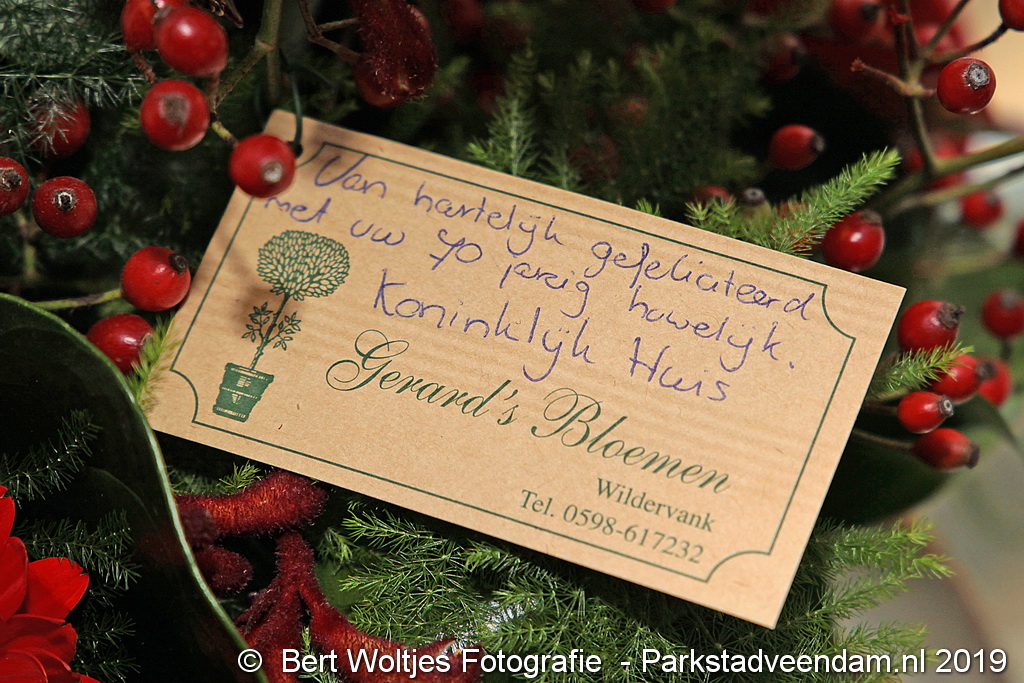 Van hartelijk gefeliciteerd
met uw 70 jareig huwelijk.
Koninklijk Huis
Gerard's Bloemen
Wildervank
Tel. 0598-617232
© Bert Woltjes Fotografie - Parkstadveendam.nl 2019